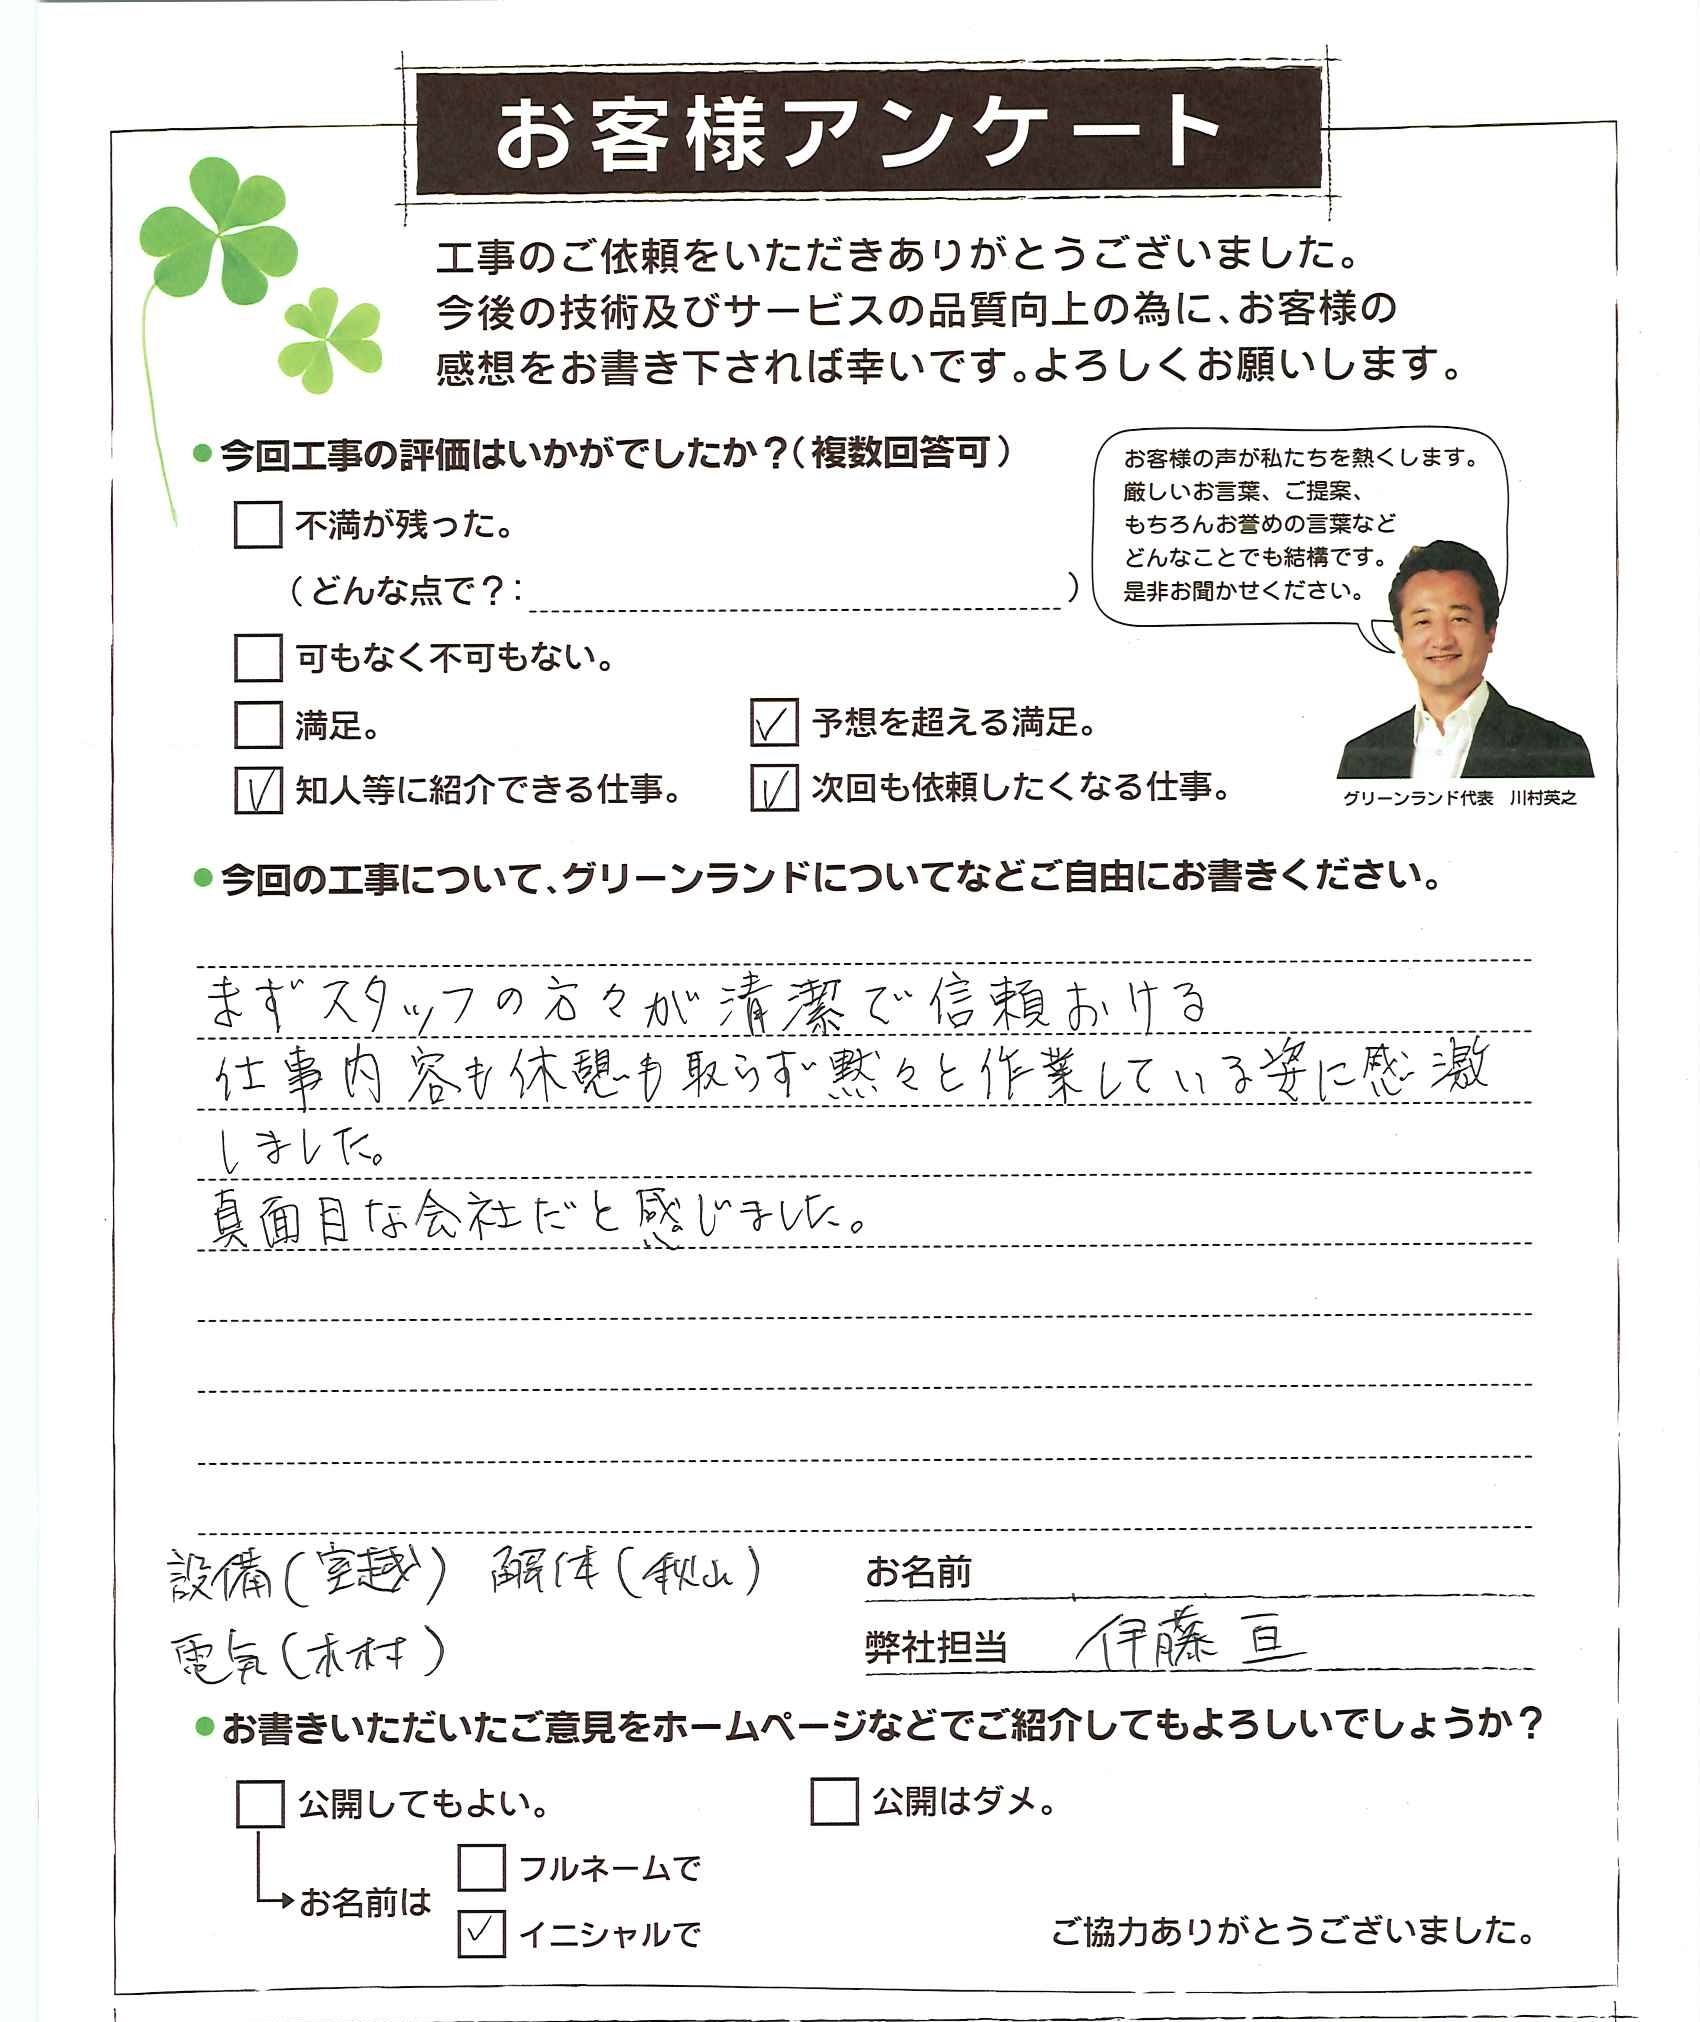 お客様アンケート
工事のご依頼をいただきありがとうございました。
今後の技術及びサービスの品質向上の為に、お客様の
感想をお書き下されば幸いです。よろしくお願いします。
●今回工事の評価はいかがでしたか?(複数回答可)
お客様の声が私たちを熱くします。
厳しいお言葉、ご提案、
もちろんお誉めの言葉など
どんなことでも結構です。
是非お聞かせください。
不満が残った。
(どんな点で?: )
可もなく不可もない。
満足。 ✓ 予想を超える満足。
✓ 知人等に紹介できる仕事。 ✓ 次回も依頼したくなる仕事。
グリーンランド代表 川村英之
●今回の工事について、グリーンランドについてなどご自由にお書きください。
まずスタッフの方々が清潔で信頼おける
仕事内容も休憩も取らず黙々と作業している姿に感激
しました。
真面目な会社だと感じました。
設備(室越) 解体(秋山) お名前
電気(木村) 弊社担当 伊藤 亘
●お書きいただいたご意見をホームページなどでご紹介してもよろしいでしょうか?
公開してもよい。 公開はダメ。
フルネームで
お名前は
✓ イニシャルで
ご協力ありがとうございました。